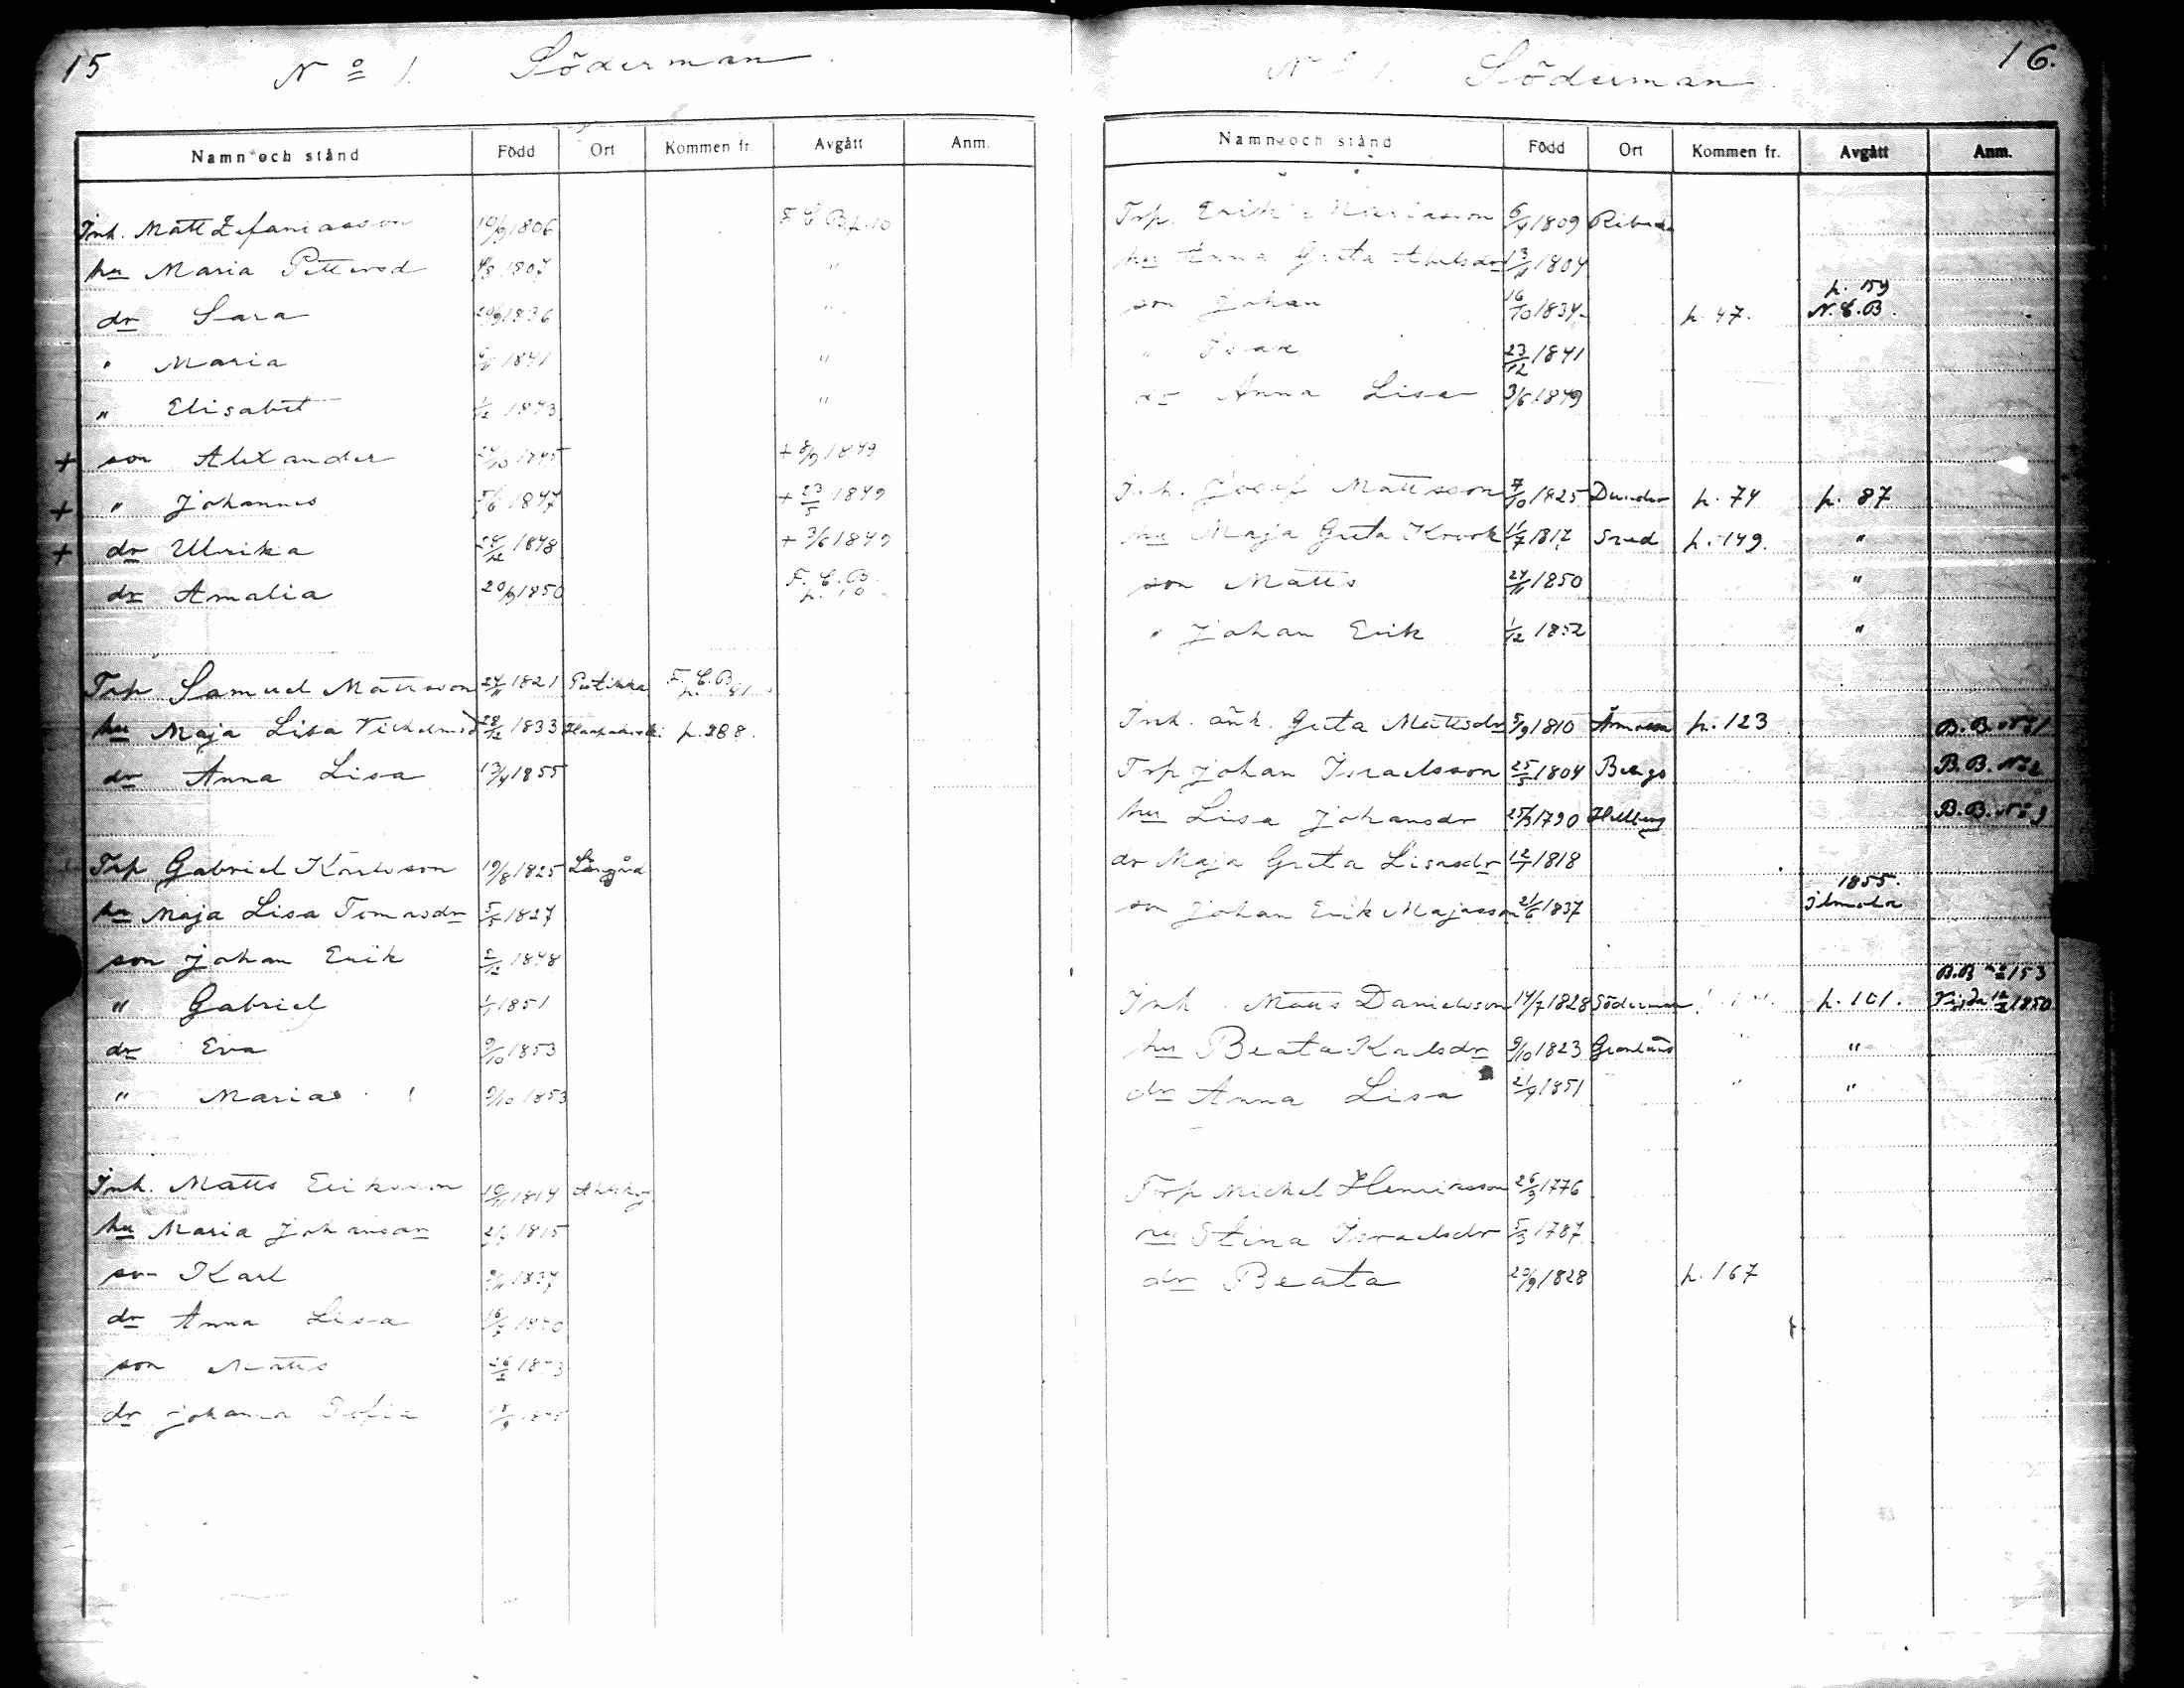 15
No 1. Söderman.
Namn och stånd Född Ort Kommen fr. Avgått Anm.
Inh. Matt Zefaniasson 10/9 1806 F.C.B. p. 10
hu Maria Pettersd 1807 "
dr Sara 20/9 1836 "
" Maria 1841 "
" Elisabet 1/12 1843 "
+ son Alexander 24/10 1845 + 8/9 1849
+ " Johannes 5/6 1847 + 23/5 1849
+ dr Ulrika 1848 + 3/6 1849
dr Amalia 20/9 1850 F.C.B. p. 10
Trp Samuel Mattsson 24/11 1821 F.C.B. p. 41
hu Maja Lisa Vilhelmsd 28/12 1833 p. 288.
dr Anna Lisa 13/4 1855
Trp Gabriel Karlsson 19/8 1825 Långård
hu Maja Lisa Tomasdr 5/5 1827
son Johan Erik 2/12 1848
" Gabriel 1851
dr Eva 9/10 1853
" Maria 9/10 1853
Inh. Matts Eriksson 1814
hu Maria Johansdr 1815
son Karl 1837
dr Anna Lisa 16/7 1840
son Matts 1843
dr Johanna Sofia
16.
No 1. Söderman
Namn och stånd Född Ort Kommen fr. Avgått Anm.
Trp. Erik 6/4 1809
hu Anna Greta Abelsdr 1804
son Johan 16/10 1834 p. 47. p. 159 N.C.B.
" Isak 23/12 1841
dr Anna Lisa 3/6 1849
Inh. Josef Mattsson 7/10 1825 Dunder p. 74 p. 87
hu Maja Greta Krook 11/7 1817 Sved p. 149. "
son Matts 24/11 1850 "
" Johan Erik 1/12 1852 "
Inh. änk. Greta Mattsdr 5/9 1810 p. 123 B.B. No 1
Trp Johan Israelsson 25/5 1804 Bergs B.B. No 2
hu Lisa Johansdr 25/3 1790 Hellberg B.B. No 3
dr Maja Greta Lisasdr 1818
son Johan Erik Majasson 21/6 1837 1855. Ilmola
Inh. Matts Danielsson 14/7 1828 Söderman p. 101. B.B. No 153 Vigda 1850
hu Beata Karlsdr 9/10 1823 Granlund " "
dr Anna Lisa 21/9 1851 " "
Trp Mickel Henriksson 26/9 1776
hu Stina Israelsdr 5/3 1787
dr Beata 20/9 1828 p. 167